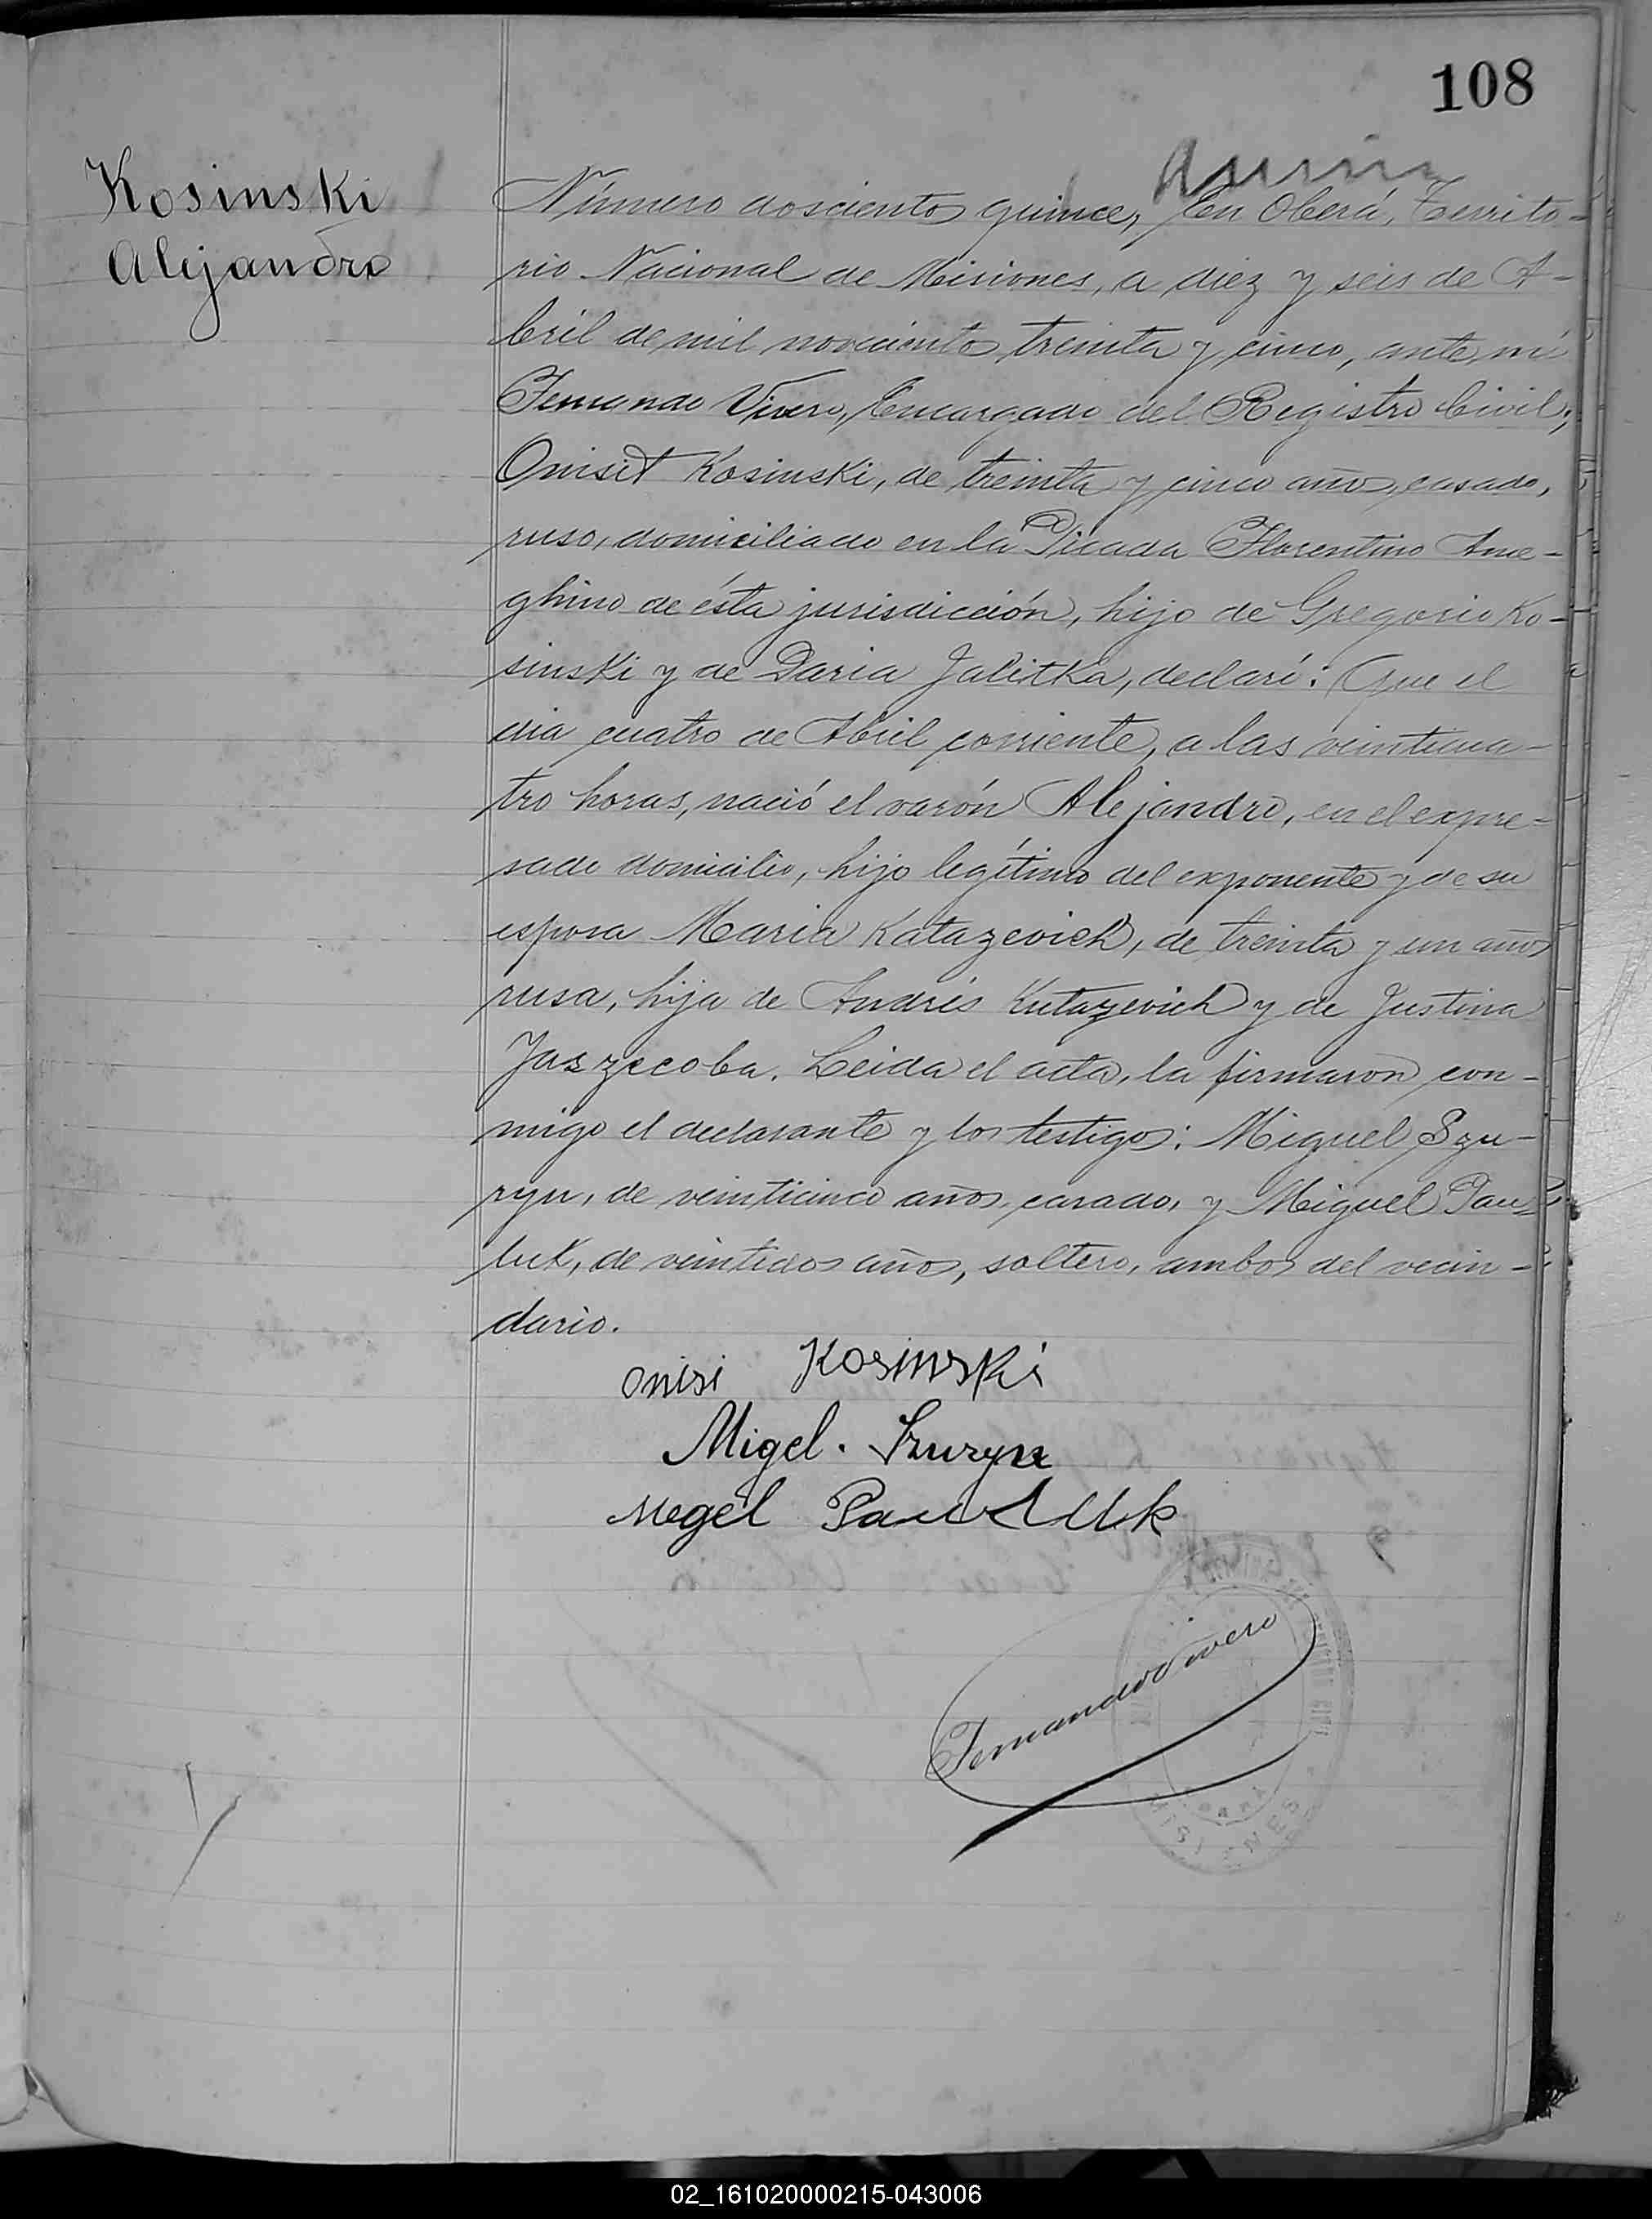 108
Kosinski
Alejandro
Número doscientos quince, En Oberá, Territo-
rio Nacional de Misiones, a diez y seis de A-
bril de mil novecientos treinta y cinco, ante mí
Fernando Vivero, Encargado del Registro Civil;
Onisit Kosinski, de treinta y cinco años, casado,
ruso, domiciliado en la Picada Florentino Ame-
ghino de ésta jurisdicción, hijo de Gregorio Ko-
sinski y de Daria Jalitka, declaró: Que el
dia cuatro de Abril corriente, a las veinticua-
tro horas, nació el varón Alejandro, en el expre-
sado domicilio, hijo legítimo del exponente y de su
esposa Maria Katazevich, de treinta y un años
rusa, hija de Andrés Kutazevich y de Justina
Jaszecoba. Leida el acta, la firmaron con-
migo el declarante y los testigos: Miguel Szu-
ryn, de veinticinco años, casado, y Miguel Pau-
luk, de veintidos años, soltero, ambos del vecin-
dario.
onisi Kosinski
Migel. Szuryn
Megel Pauluk
Fernando Vivero
02_161020000215-043006